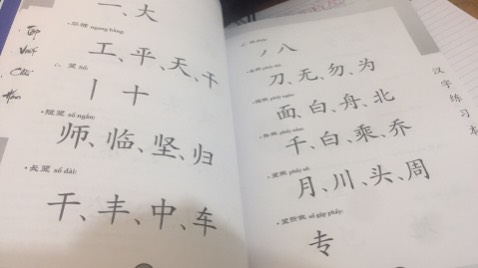 一、大
ngang bằng
工、平、天、干
丨 十
短竖 sổ ngắn:
师、临、坚、归
长竖 sổ dài:
干、丰、中、车
Tập
Viết
Chữ
Hán
丿 八
刀、无、勿、为
面、白、舟、北
千、白、乘、乔
月、川、头、周
竖折撇 sổ gập phẩy:
专
汉字练习本